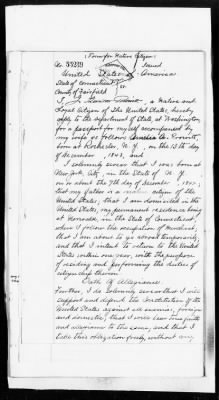 (Form for Native Citizen)
No. 55219 Issued
United States of America
State of Connecticut
County of Fairfield } ss.
I, J., a Native and
Loyal Citizen of the United States, hereby
apply to the Department of State, at Washington,
for a passport for myself accompanied by
my wife as follows
born at Rochester, N.Y., on the 13th day
of December, and
I solemnly swear that I was born at
New York City, in the State of N.Y.
on or about the 7th day of
that my father is a citizen of the
United States; that I am domiciled in the
United States, my permanent residence being
at Norwalk, in the State of Connecticut,
where I follow the occupation of Merchant;
that I am about to go abroad temporarily;
and that I intend to return to the United
States within one year, with the purpose
of residing and performing the duties of
citizenship therein.
Oath of Allegiance
Further, I do solemnly swear that I will
support and defend the Constitution of the
United States against all enemies, foreign
and domestic; that I will bear true faith
and allegiance to the same; and that I
take this obligation freely, without any